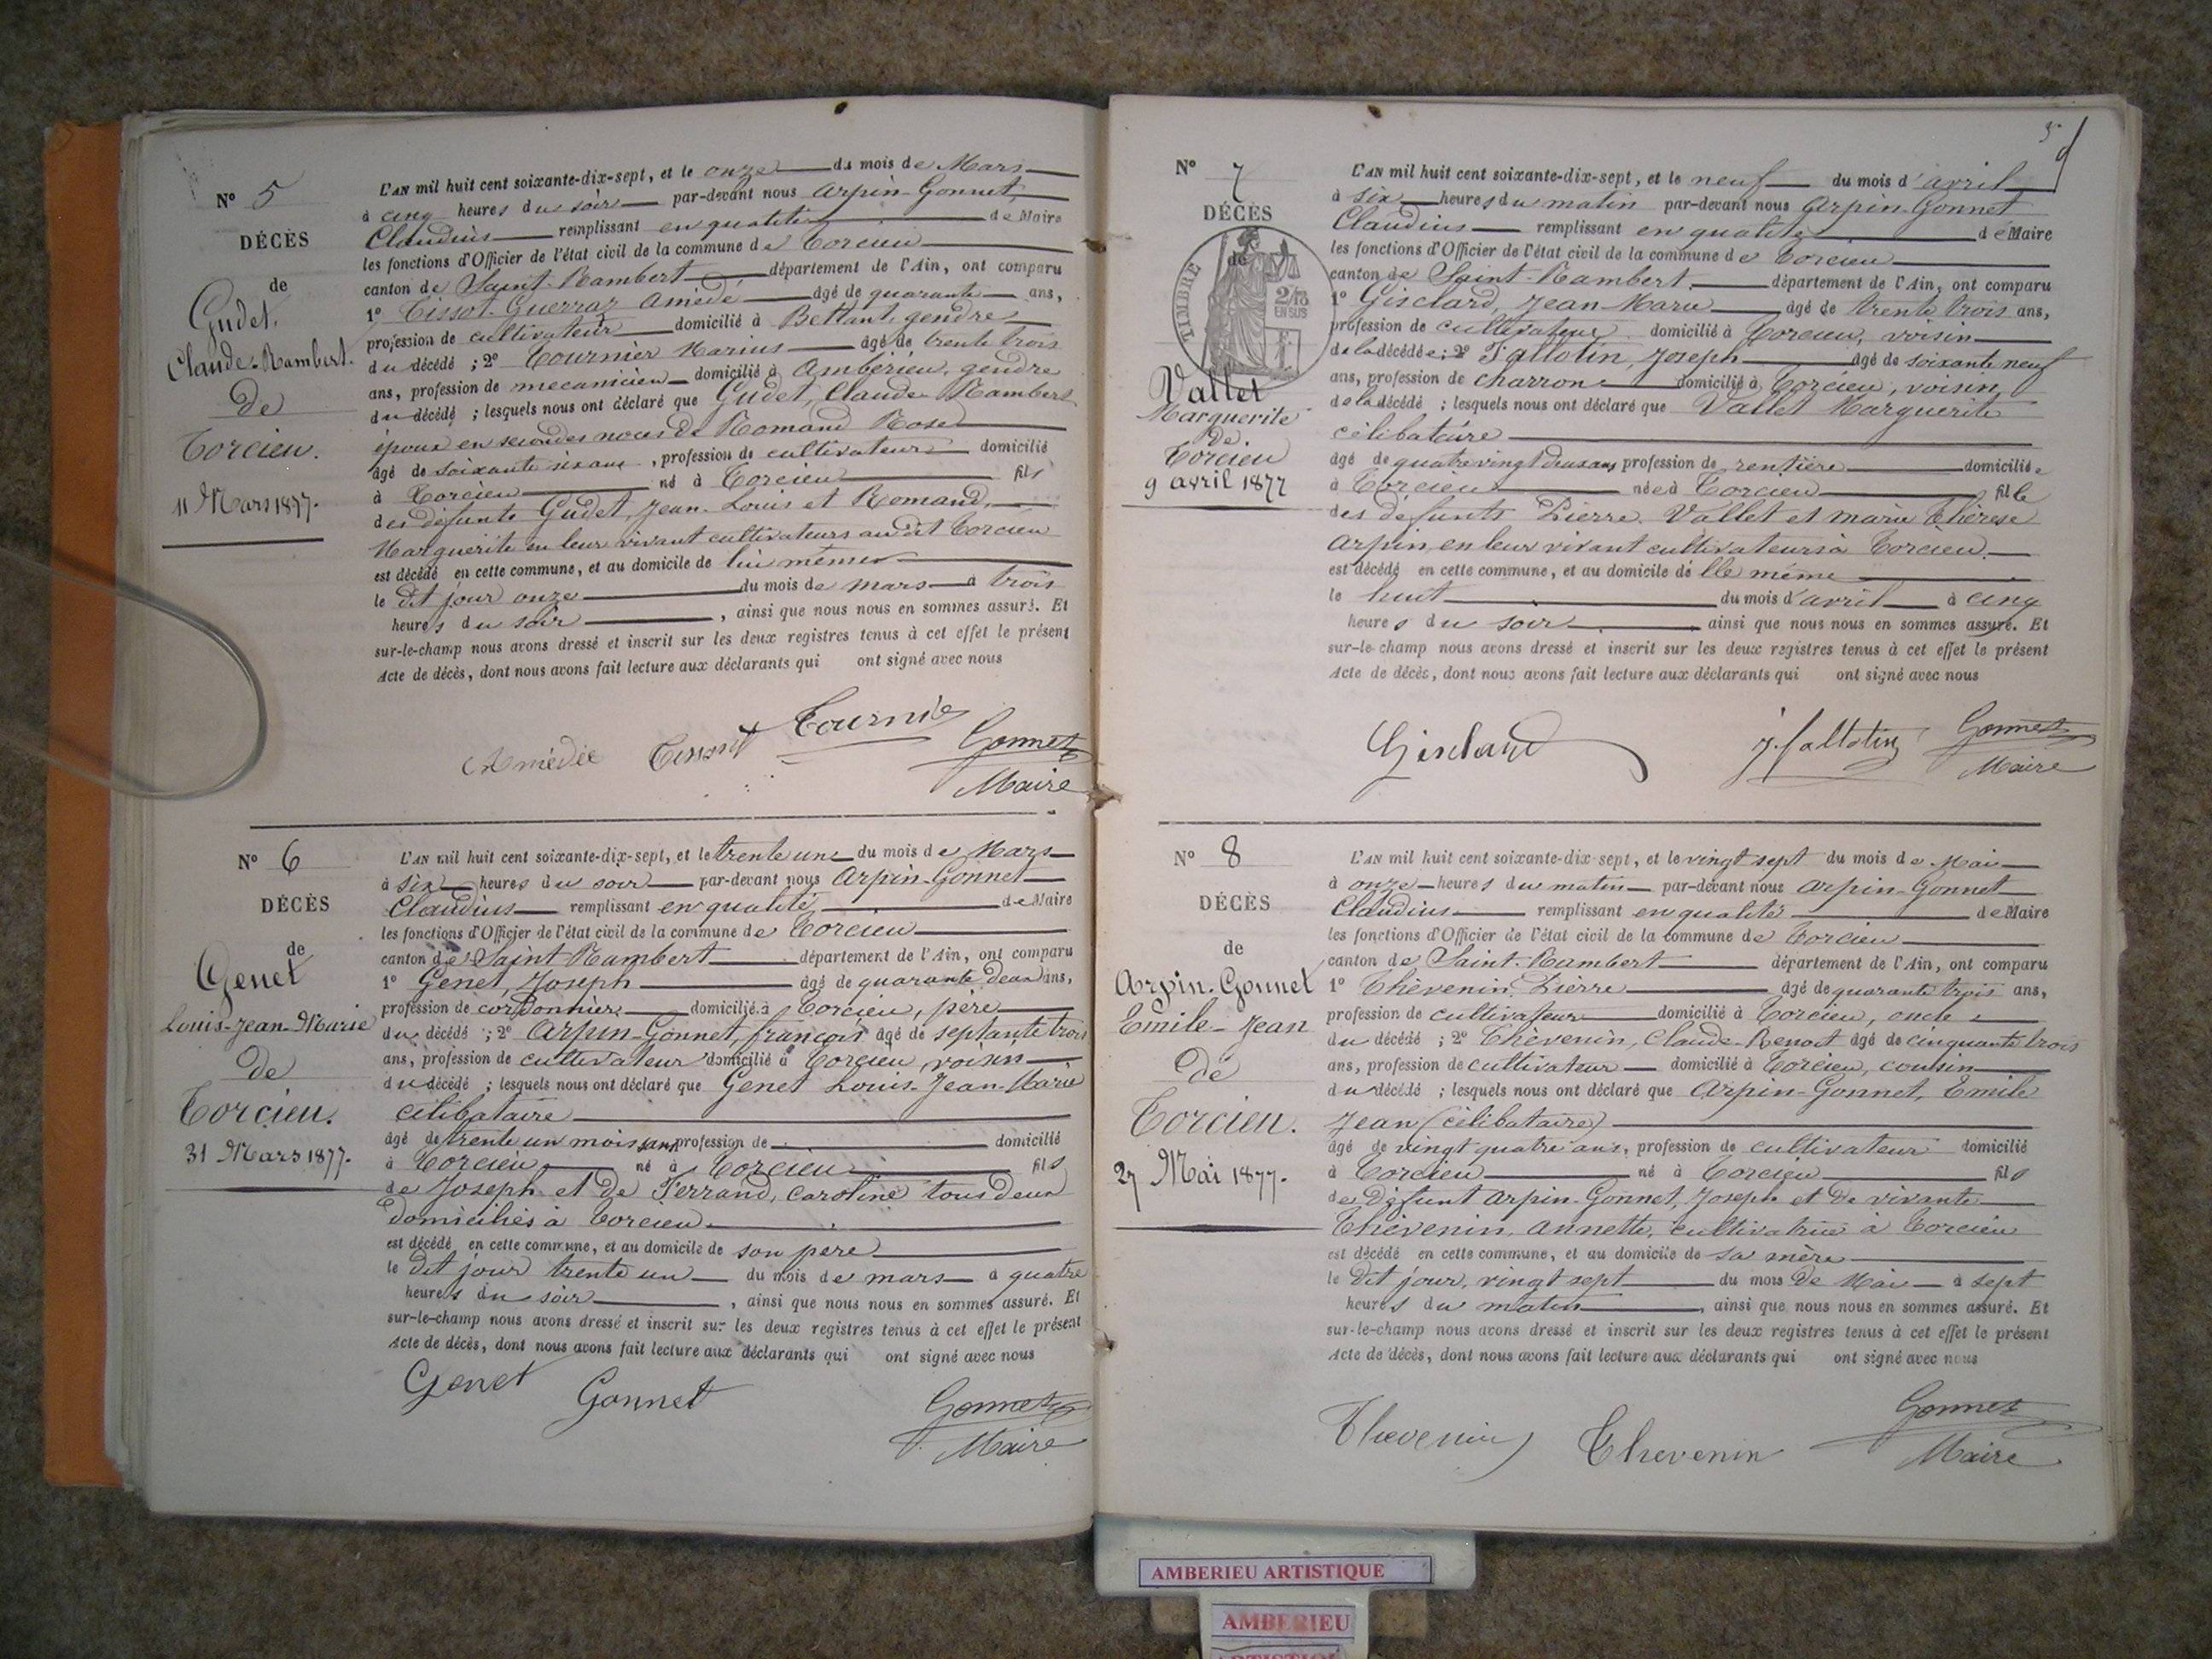 N° 5
DÉCÈS
de
Gudet,
Claude-Rambert.
De
Torcieu.
11 Mars 1877.
L'AN mil huit cent soixante-dix-sept, et le onze du mois de Mars
à cinq heures du soir par-devant nous Arpin-Gonnet,
Claudius remplissant en qualité de Maire
les fonctions d'Officier de l'état civil de la commune de Torcieu
canton de Saint-Rambert département de l'Ain, ont comparu
1° Tissot-Guerraz Amédé âgé de quarante ans,
profession de cultivateur domicilié à Bettant, gendre
du décédé ; 2° Tournier Marius âgé de trente trois
ans, profession de mecanicien domicilié à Ambérieu, gendre
du décédé ; lesquels nous ont déclaré que Gudet, Claude Rambert
époux en secondes noces de Romand Rose
âgé de soixante six ans, profession de cultivateur domicilié
à Torcieu né à Torcieu fils
des défunts Gudet, Jean-Louis et Romand,
Marguerite en leur vivant cultivateurs au dit Torcieu
est décédé en cette commune, et au domicile de lui même
le dit jour onze du mois de mars à trois
heures du soir, ainsi que nous nous en sommes assuré. Et
sur-le-champ nous avons dressé et inscrit sur les deux registres tenus à cet effet le présent
Acte de décès, dont nous avons fait lecture aux déclarants qui ont signé avec nous
Amédée Tissot Tournier Gonnet
Maire
N° 6
DÉCÈS
de
Genet
Louis-Jean-Marie
De
Torcieu.
31 Mars 1877.
L'AN mil huit cent soixante-dix-sept, et le trente un du mois de Mars
à six heures du soir par-devant nous Arpin-Gonnet
Claudius remplissant en qualité de Maire
les fonctions d'Officier de l'état civil de la commune de Torcieu
canton de Saint-Rambert département de l'Ain, ont comparu
1° Genet, Joseph âgé de quarante deux ans,
profession de cordonnier domicilié à Torcieu, père
du décédé ; 2° Arpin-Gonnet, françois âgé de septante trois
ans, profession de cultivateur domicilié à Torcieu, voisin
du décédé ; lesquels nous ont déclaré que Genet Louis-Jean-Marie
célibataire
âgé de trente un mois sans profession de domicilié
à Torcieu né à Torcieu fils
de Joseph et de Ferrand, Caroline tous deux
domiciliés à Torcieu
est décédé en cette commune, et au domicile de son père
le dit jour trente un du mois de mars à quatre
heures du soir, ainsi que nous nous en sommes assuré. Et
sur-le-champ nous avons dressé et inscrit sur les deux registres tenus à cet effet le présent
Acte de décès, dont nous avons fait lecture aux déclarants qui ont signé avec nous
Genet Gonnet Gonnet
Maire
5
N° 7
DÉCÈS
de
TIMBRE
2/10
EN SUS
Vallet
Marguerite
De
Torcieu
9 avril 1877
L'AN mil huit cent soixante-dix-sept, et le neuf du mois d'avril
à six heures du matin par-devant nous Arpin-Gonnet
Claudius remplissant en qualité de Maire
les fonctions d'Officier de l'état civil de la commune de Torcieu
canton de Saint-Rambert département de l'Ain, ont comparu
1° Gisclard, Jean-Marie âgé de trente trois ans,
profession de cultivateur domicilié à Torcieu, voisin
de la décédée ; 2° Fallotin, Joseph âgé de soixante neuf
ans, profession de charron domicilié à Torcieu, voisin
de la décédé ; lesquels nous ont déclaré que Vallet Marguerite
célibataire
âgé de quatre vingt deux ans profession de rentière domiciliée
à Torcieu née à Torcieu fille
des défunts Pierre Vallet et marie Thérèse
Arpin, en leur vivant cultivateurs à Torcieu
est décédé en cette commune, et au domicile d'elle même
le huit du mois d'avril à cinq
heures du soir ainsi que nous nous en sommes assuré. Et
sur-le-champ nous avons dressé et inscrit sur les deux registres tenus à cet effet le présent
Acte de décès, dont nous avons fait lecture aux déclarants qui ont signé avec nous
Gisclard J. fallotin Gonnet
Maire
N° 8
DÉCÈS
de
Arpin-Gonnet
Emile-Jean
De
Torcieu.
27 Mai 1877.
L'AN mil huit cent soixante-dix-sept, et le vingt sept du mois de Mai
à onze heures du matin par-devant nous Arpin-Gonnet
Claudius remplissant en qualité de Maire
les fonctions d'Officier de l'état civil de la commune de Torcieu
canton de Saint-Rambert département de l'Ain, ont comparu
1° Thévenin Pierre âgé de quarante trois ans,
profession de cultivateur domicilié à Torcieu, oncle
du décédé ; 2° Thévenin, Claude-Benoit âgé de cinquante trois
ans, profession de cultivateur domicilié à Torcieu, cousin
du décédé ; lesquels nous ont déclaré que Arpin-Gonnet, Emile
Jean (célibataire)
âgé de vingt quatre ans, profession de cultivateur domicilié
à Torcieu né à Torcieu fils
de défunt Arpin-Gonnet, Joseph et de vivante
Thévenin, Annette, cultivatrice à Torcieu
est décédé en cette commune, et au domicile de sa mère
le dit jour, vingt sept du mois de Mai à sept
heures du matin, ainsi que nous nous en sommes assuré. Et
sur-le-champ nous avons dressé et inscrit sur les deux registres tenus à cet effet le présent
Acte de décès, dont nous avons fait lecture aux déclarants qui ont signé avec nous
Thevenin Thevenin Gonnet
Maire
AMBERIEU ARTISTIQUE
AMBERIEU
ARTISTIQUE